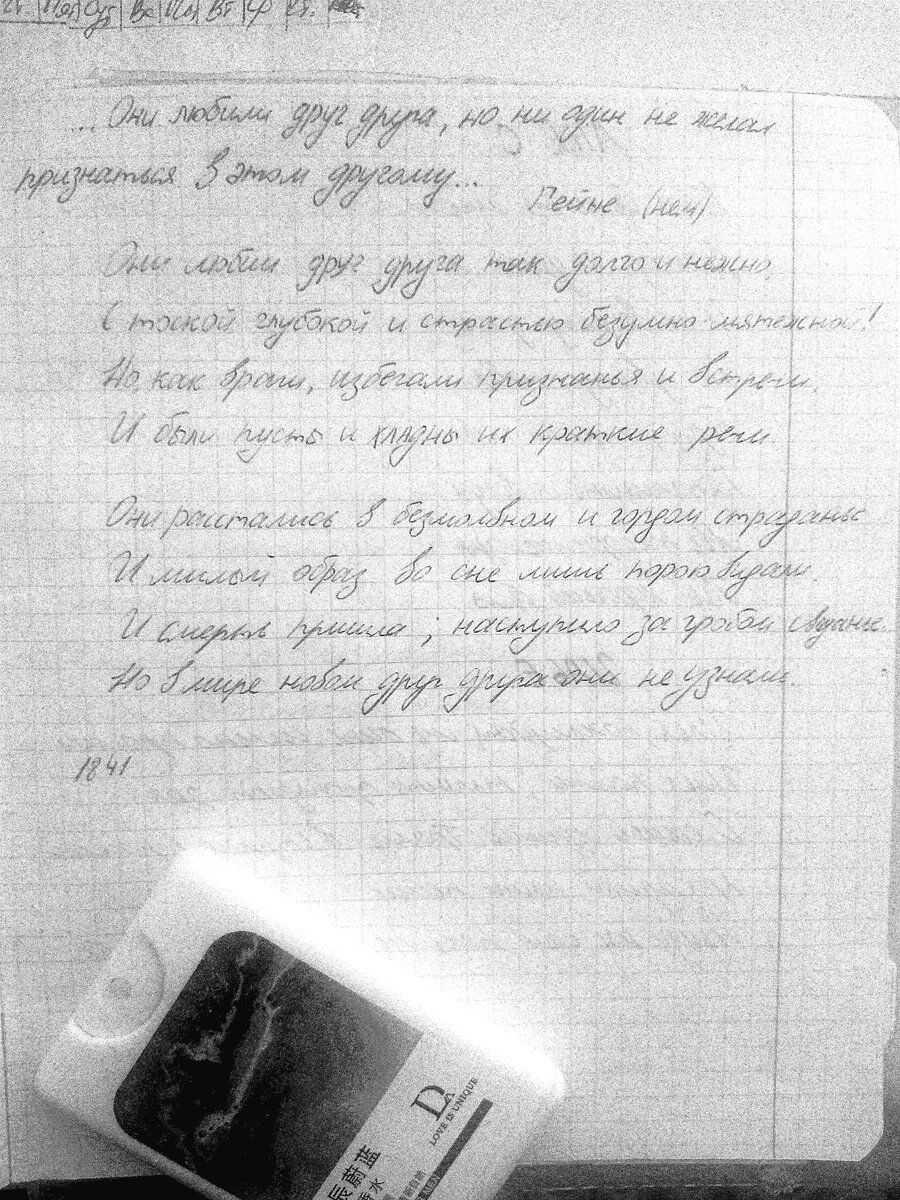 Пон Ср Вс Пл Вт
...Они любили друг друга, но ни один не желал
признаться в этом другому...
Гейне (нем)
Они любили друг друга так долго и нежно,
С тоской глубокой и страстью безумно мятежной!
Но, как враги, избегали признанья и встречи,
И были пусты и хладны их краткие речи.
Они расстались в безмолвном и гордом страданье
И милый образ во сне лишь порою видали.
И смерть пришла; наступило за гробом свиданье
Но в мире новом друг друга они не узнали.
1841
DA
LOVE IS UNIQUE
辰蔚蓝
香水